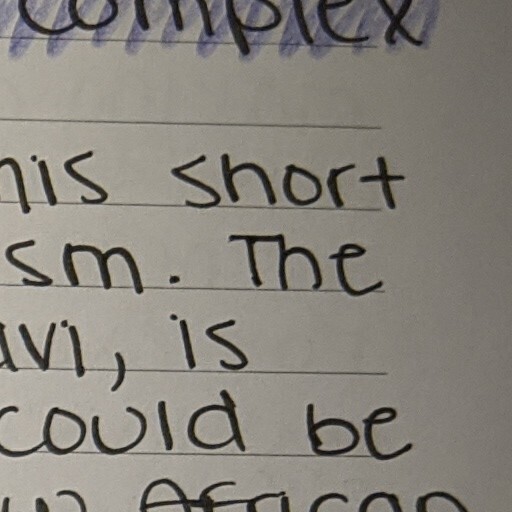 complex
his short
sm. The
avi, is
could be
African